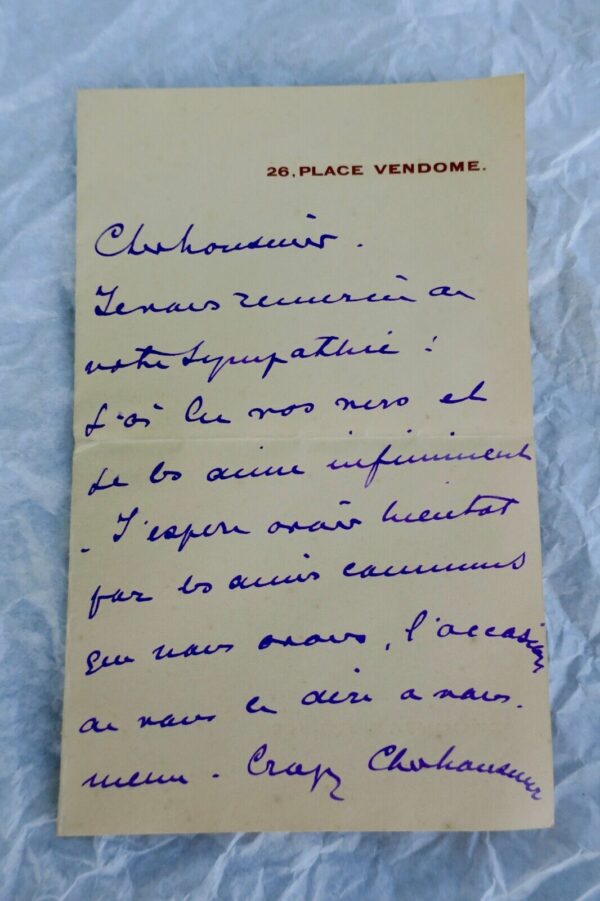 26, PLACE VENDOME.
Cher monsieur.
Je vous remercie de
votre sympathie !
J'ai lu vos vers et
je les aime infiniment
- J'espère avoir bientot
par les amis communs
que nous avons, l'occasion
de vous le dire a vous.
meme. Croyez Cher monsieur